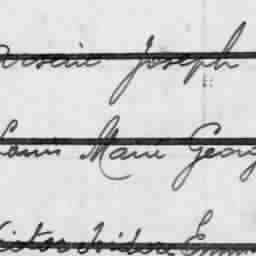 Joseph
Louis Marie Georg
Victor Isidore Emm